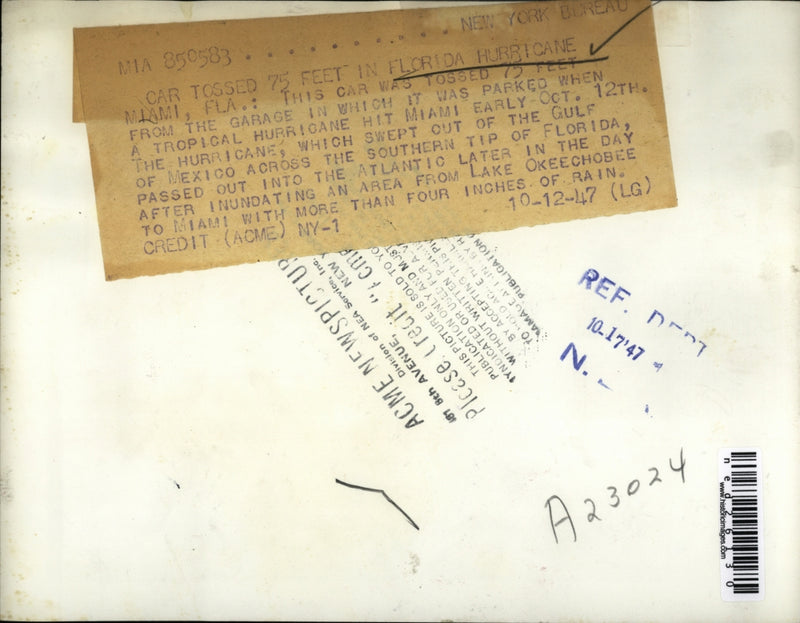 NEW YORK BUREAU
MIA 850583 ...........
CAR TOSSED 75 FEET IN FLORIDA HURRICANE
MIAMI, FLA.: THIS CAR WAS TOSSED 75 FEET
FROM THE GARAGE IN WHICH IT WAS PARKED WHEN
A TROPICAL HURRICANE HIT MIAMI EARLY OCT. 12TH.
THE HURRICANE, WHICH SWEPT OUT OF THE GULF
OF MEXICO ACROSS THE SOUTHERN TIP OF FLORIDA,
PASSED OUT INTO THE ATLANTIC LATER IN THE DAY
AFTER INUNDATING AN AREA FROM LAKE OKEECHOBEE
TO MIAMI WITH MORE THAN FOUR INCHES OF RAIN.
CREDIT (ACME) NY-1 10-12-47 (LG)
ACME NEWSPICTUR
Division of NEA Service, Inc.
8th AVENUE, NEW
Please Credit "Acme
THIS PICTURE IS SOLD TO YO
PUBLICATION ONLY AND MUST
WITHOUT WRITTEN
BY ACCEPTING THIS PI
PUBLICATION
REF. DEPT
10-17'47
N.
A23024
ned26130
www.historicimages.com